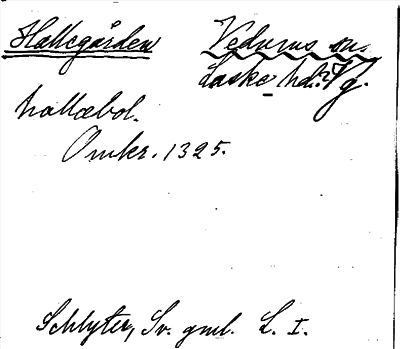 Hallegården Vedums sn.
Laske hd. Vg.
hallæbol.
Omkr. 1325.
Schlyter, Sv. gml. L. I.